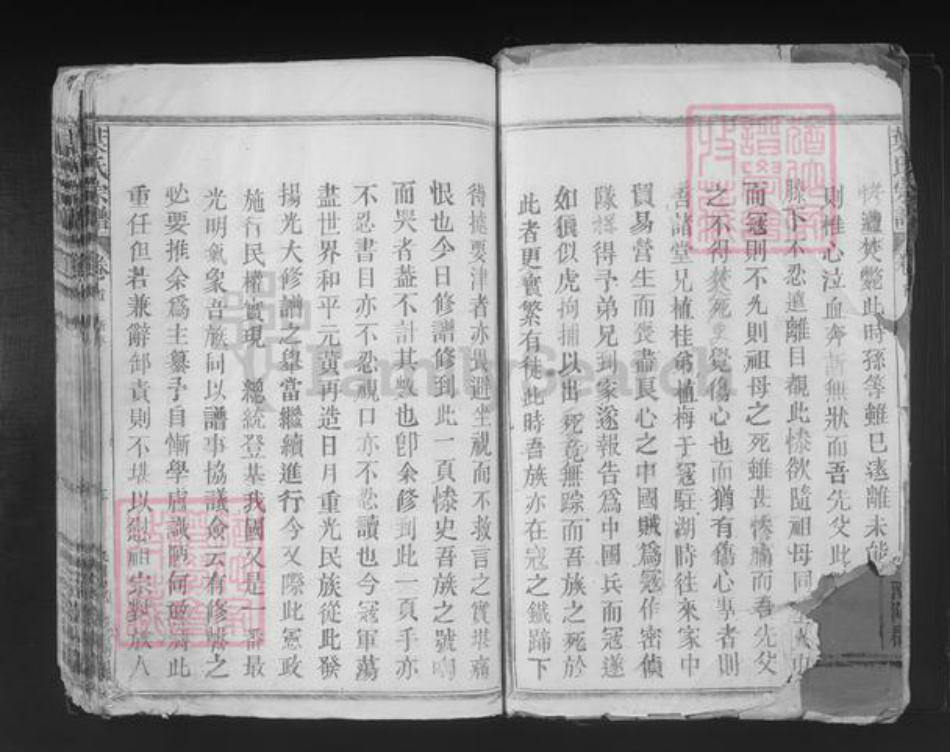 葉氏宗譜 卷首
遭焚斃此時孫等雖已遠離未能
則推心泣血奔訴無狀而吾先父此
膝下不忍遠離目覩此慘欲隨祖母同
而寇則不允則祖母之死雖甚慘痛而吾先父
之不得焚死更覺傷心也而猶有傷心事者則
吾諸堂兄植桂弟植梅于寇駐湖時往來家中
貿易營生而喪盡良心之中國賊為寇作密偵
隊探得予弟兄到家遂報告為中國兵而寇遂
如狼似虎拘捕以出死竟無踪而吾族之死於
此者更實繁有徒此時吾族亦在寇之鐵蹄下
待據要津者亦畏避坐視而不救言之實堪痛
恨也今日修譜修到此一頁慘史吾族之號啕
而哭者蓋不計其數也卽余修到此一頁手亦
不忍書目亦不忍視口亦不忍讀也今寇軍蕩
盡世界和平元黃再造日月重光民族從此發
揚光大修譜之舉當繼續進行今又際此憲政
施行民權實現 總統登基我國又是一番最
光明氣象吾族同以譜事協議僉云有修譜之
必要推余為主纂予自慚學膚識陋何敢膺此
重任但若兼辭卸責則不堪以慰祖宗對族人
葉氏宗譜 卷首
FamilySearch